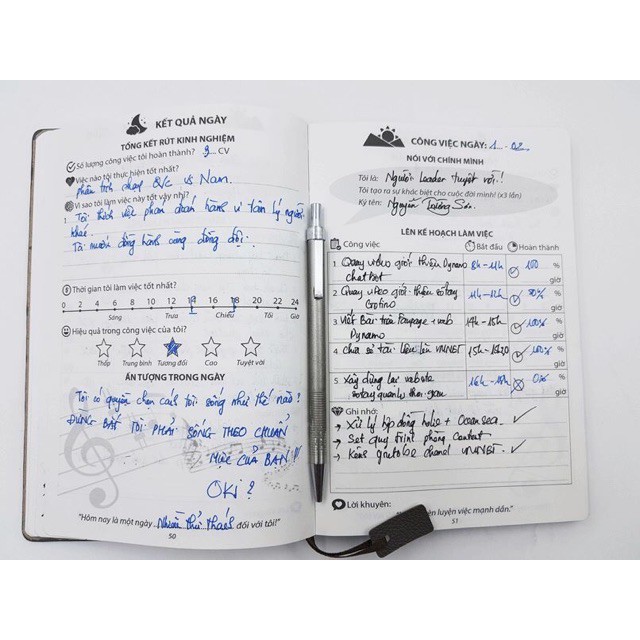 KẾT QUẢ NGÀY
TỔNG KẾT RÚT KINH NGHIỆM
Số lượng công việc tôi hoàn thành? 9 CV
Việc nào tôi thực hiện tốt nhất?
phân tích shop với Nam.
Vì sao tôi làm việc này tốt vậy nhỉ?
1. Tôi thích việc phán đoán hành vi tâm lý người
khác.
Tôi muốn đồng hành cùng đồng đội.
Thời gian tôi làm việc tốt nhất?
0 2 4 6 8 10 12 14 16 18 20 22 24
Sáng Trưa Chiều Tối Giờ
Hiệu quả trong công việc của tôi?
Thấp Trung bình Tương đối Cao Tuyệt vời
ẤN TƯỢNG TRONG NGÀY
Tôi có quyền chọn cách tôi sống như thế nào!
ĐỪNG BẮT TÔI PHẢI SỐNG THEO CHUẨN
MỰC CỦA BẠN !!!
OKi ?
"Hôm nay là một ngày Nhiều thử thách đối với tôi!"
50
CÔNG VIỆC NGÀY: 1 .. 02
NÓI VỚI CHÍNH MÌNH
Tôi là: Người Leader tuyệt vời.!
Tôi tạo ra sự khác biệt cho cuộc đời mình! (x3 lần)
Ký tên: Nguyễn Trường Sơn.
LÊN KẾ HOẠCH LÀM VIỆC
Công việc Bắt đầu Hoàn thành
1 Quay video giới thiệu Dynamo 8h - 11h 100 %
chatbot giờ
2 Quay video giới thiệu sổ tay 11h - 12h 90% %
giờ
3 Viết Bài trên Fanpage + web 14h - 15h 100% %
Dynamo giờ
4 chia sẻ tài liệu lên VMNET 15h - 15h30 100% %
giờ
5 Xây dựng lại website 16h - 18h 0% %
sotayquanlythoigian giờ
Ghi nhớ:
→ Xử lý hợp đồng + Ocean sea.
→ Set quy trình phòng content
→ chanel VMNET.
Lời khuyên:
rèn luyện việc mạnh dần."
51